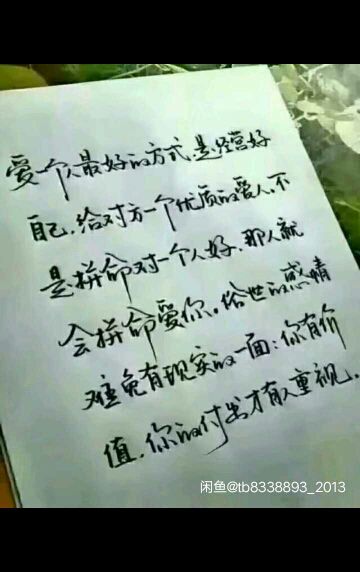 爱一个人最好的方式,是经营好
自己,给对方一个优质的爱人,不
是拼命对一个人好,那人就
会拼命爱你。俗世的感情
难免有现实的一面:你有价
值,你的付出才有人重视.
闲鱼@tb8338893_2013